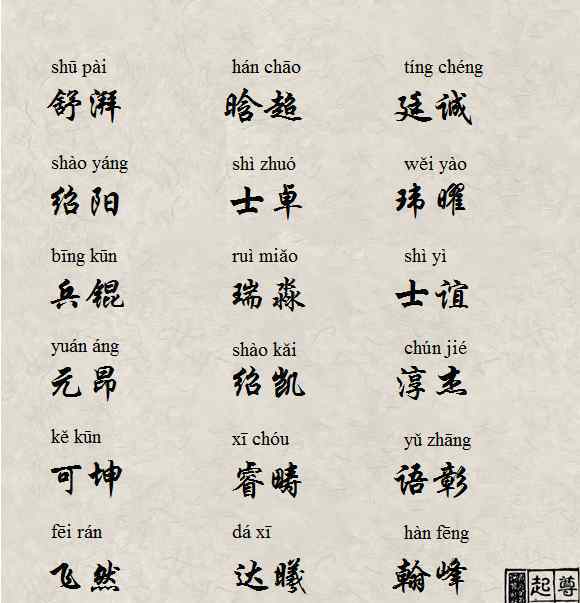 shū pài hán chāo tíng chéng
舒湃 晗超 廷诚
shào yáng shì zhuó wěi yào
绍阳 士卓 玮曜
bīng kūn ruì miǎo shì yì
兵锟 瑞淼 士谊
yuán áng shào kǎi chún jié
元昂 绍凯 淳杰
kě kūn xī chóu yǔ zhāng
可坤 睿畴 语彰
fēi rán dá xī hàn fēng
飞然 达曦 翰峰
起尊